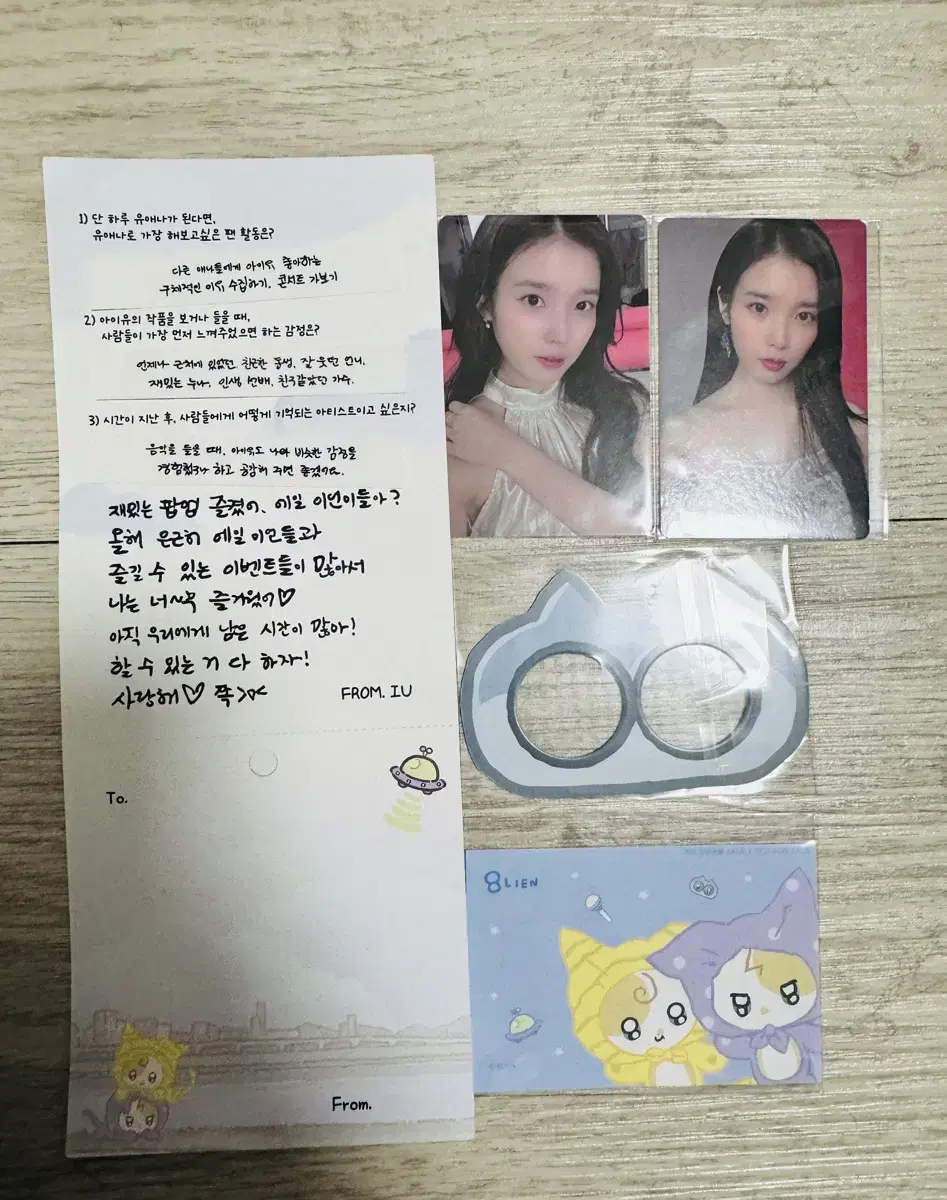 1) 단 하루 유애나가 된다면,
유애나로 가장 해보고싶은 팬 활동은?
다른 애나들에게 아이유 좋아하는
구체적인 이유 수집하기, 콘서트 가보기
2) 아이유의 작품을 보거나 들을 때,
사람들이 가장 먼저 느껴주었으면 하는 감정은?
언제나 근처에 있었던, 친근한 동생, 잘 웃던 언니,
재밌는 누나, 인생 선배, 친구같았던 가수.
3) 시간이 지난 후, 사람들에게 어떻게 기억되는 아티스트이고 싶은지?
음악을 들을 때, 아이유도 나와 비슷한 감정을
경험했구나 하고 공감해 주면 좋겠어요.
재밌는 팝업 즐겼어, 에일이언이들아?
올해 은근히 에일이언들과
즐길 수 있는 이벤트들이 많아서
나는 너~무 즐거웠어♡
아직 우리에게 남은 시간이 많아!
할 수 있는 거 다 하자!
사랑해♡ 쪽><
FROM. IU
To.
From.
8LIEN